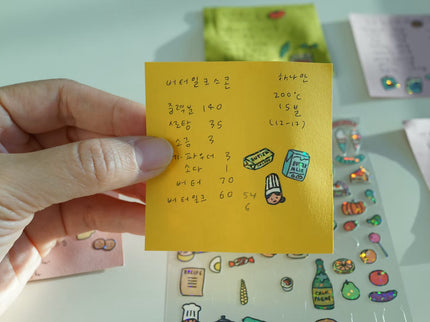 버터밀크스콘
하나만
200℃
15분
(12-17)
중력분 140
설탕 35
소금 3
파우더 3
소다 1
버터 70
버터밀크 60 54
6
BUTTER
RECIPE